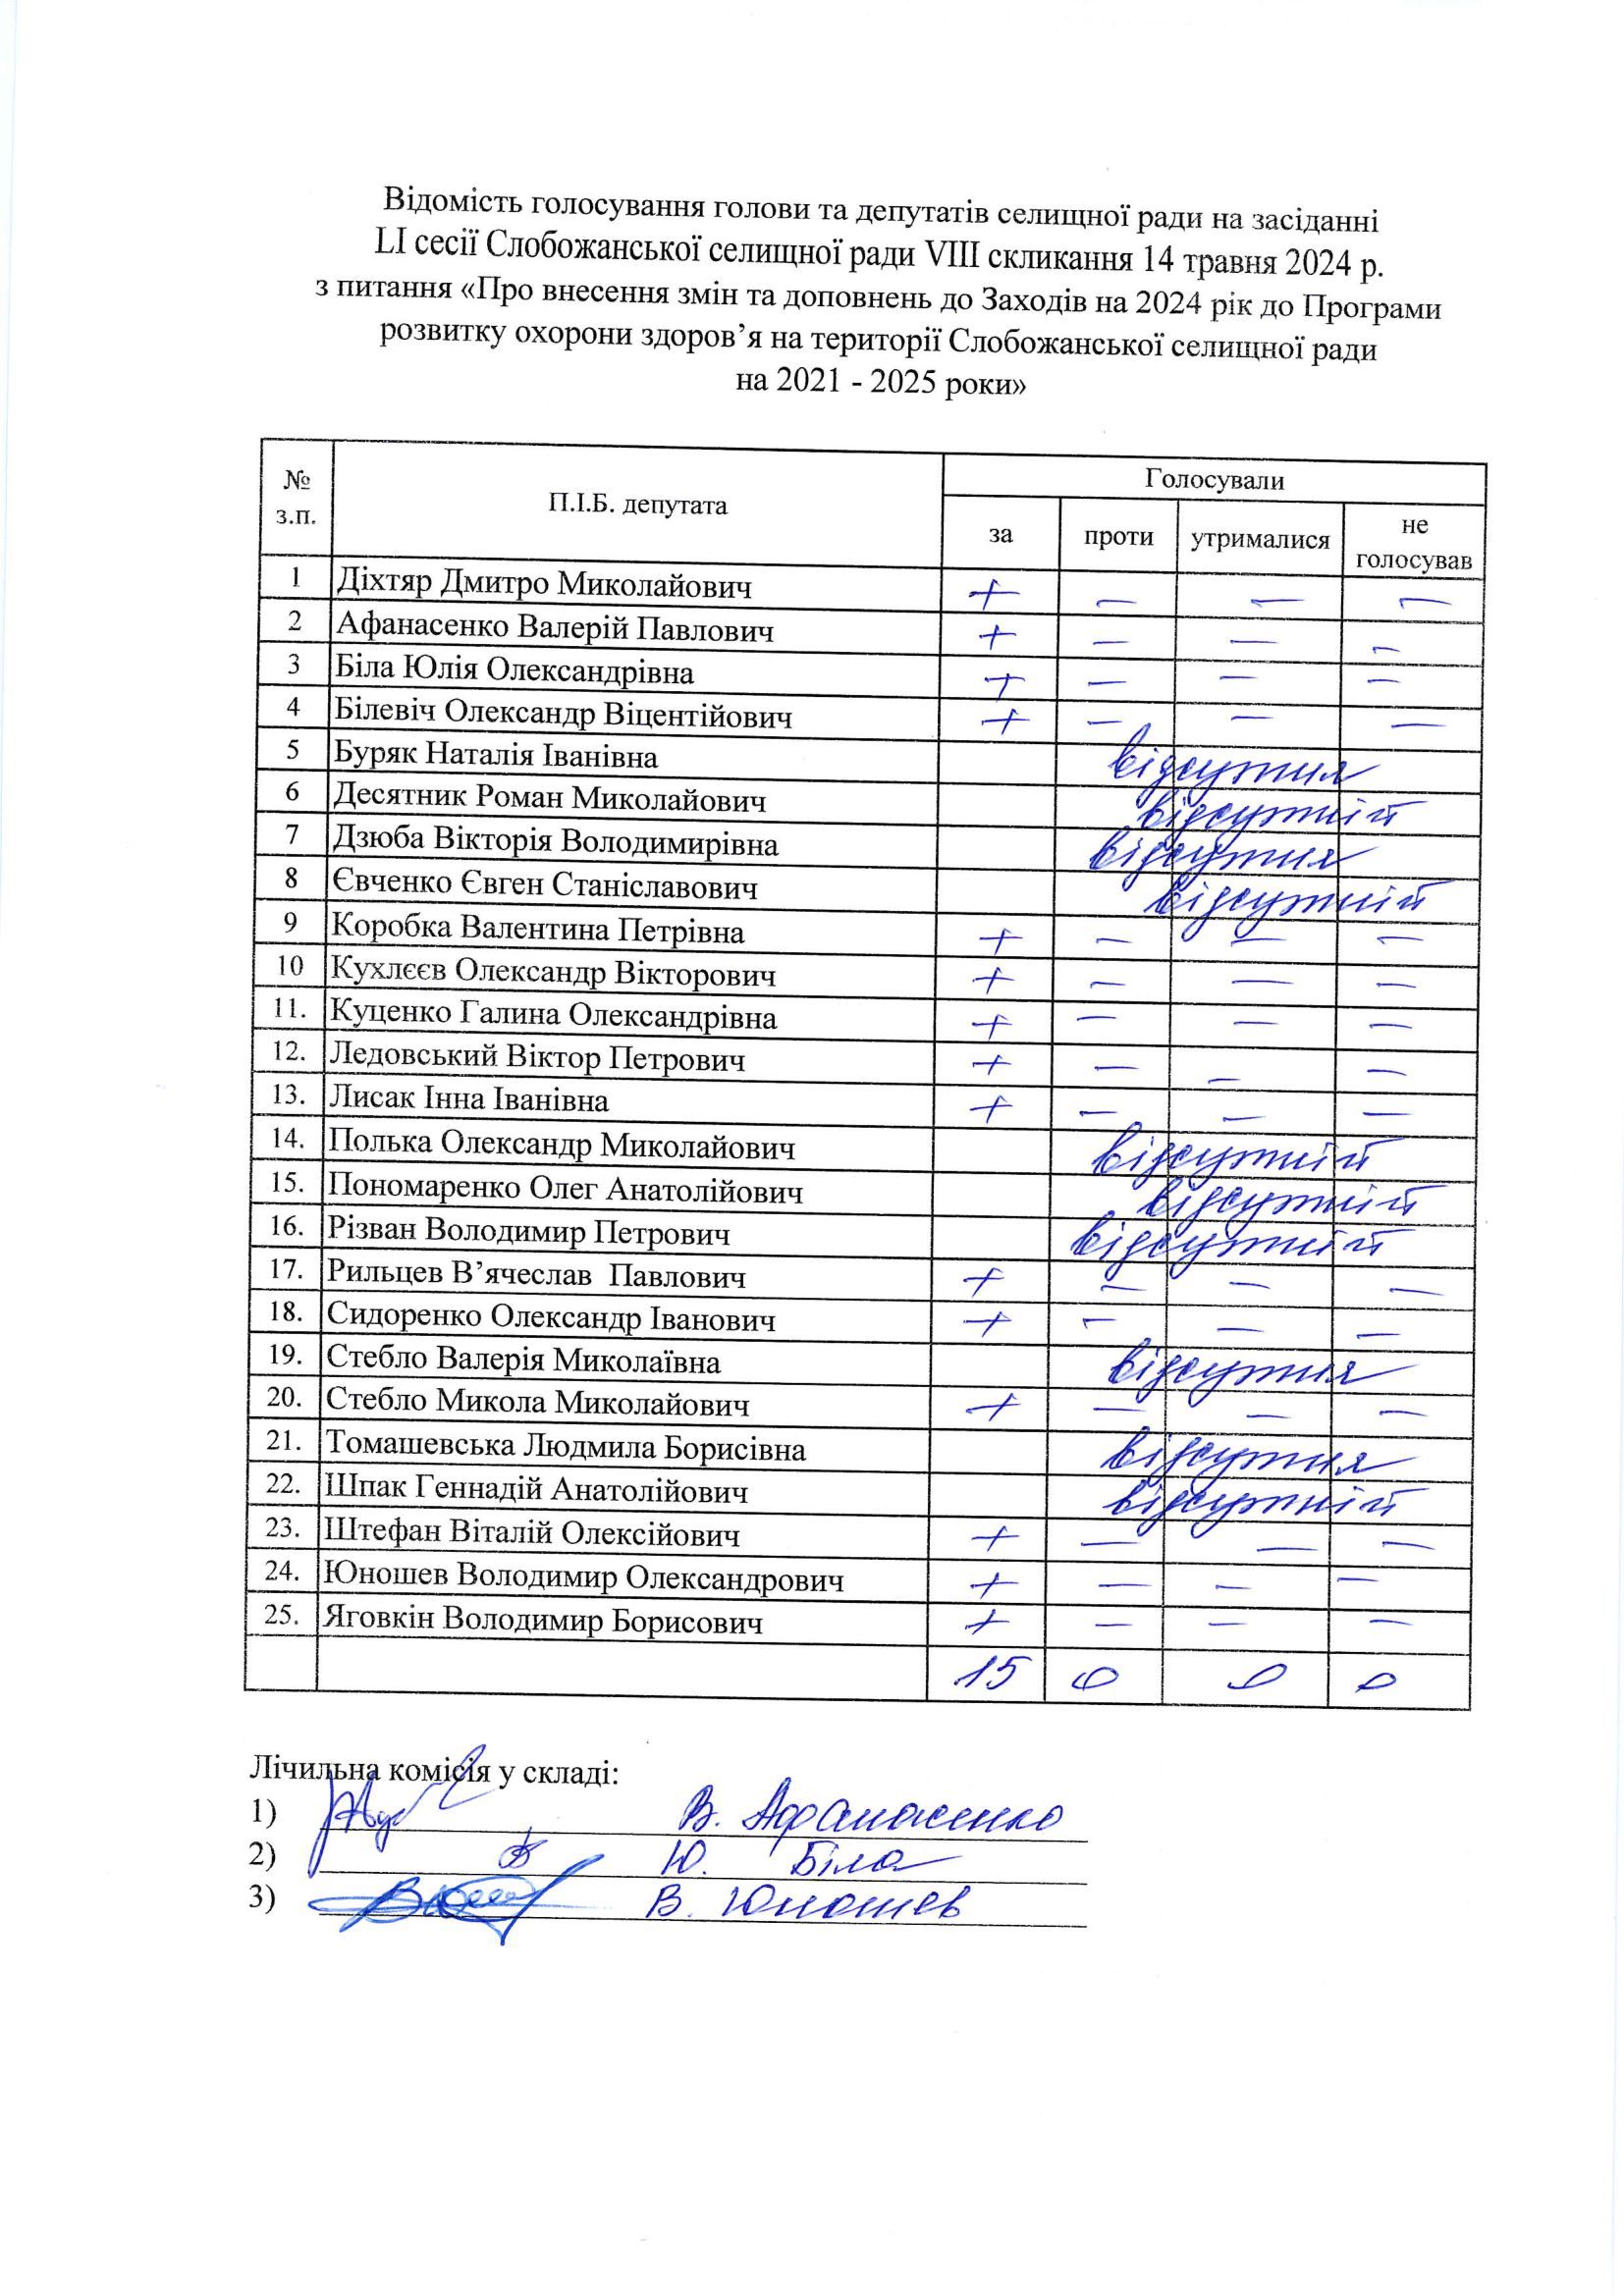 Відомість голосування голови та депутатів селищної ради на засіданні
LI сесії Слобожанської селищної ради VIII скликання 14 травня 2024 р.
з питання «Про внесення змін та доповнень до Заходів на 2024 рік до Програми
розвитку охорони здоров’я на території Слобожанської селищної ради
на 2021 - 2025 роки»
№ з.п. П.І.Б. депутата Голосували
за проти утрималися не голосував
1 Діхтяр Дмитро Миколайович + — — —
2 Афанасенко Валерій Павлович + — — —
3 Біла Юлія Олександрівна + — — —
4 Білевіч Олександр Віцентійович + — — —
5 Буряк Наталія Іванівна відсутня
6 Десятник Роман Миколайович відсутній
7 Дзюба Вікторія Володимирівна відсутня
8 Євченко Євген Станіславович відсутній
9 Коробка Валентина Петрівна + — — —
10 Кухлєєв Олександр Вікторович + — — —
11. Куценко Галина Олександрівна + — — —
12. Ледовський Віктор Петрович + — — —
13. Лисак Інна Іванівна + — — —
14. Полька Олександр Миколайович відсутній
15. Пономаренко Олег Анатолійович відсутній
16. Різван Володимир Петрович відсутній
17. Рильцев В’ячеслав Павлович + — — —
18. Сидоренко Олександр Іванович + — — —
19. Стебло Валерія Миколаївна відсутня
20. Стебло Микола Миколайович + — — —
21. Томашевська Людмила Борисівна відсутня
22. Шпак Геннадій Анатолійович відсутній
23. Штефан Віталій Олексійович + — — —
24. Юношев Володимир Олександрович + — — —
25. Яговкін Володимир Борисович + — — —
15 0 0 0
Лічильна комісія у складі:
1) В. Афанасенко
2) Ю. Біла
3) В. Юношев